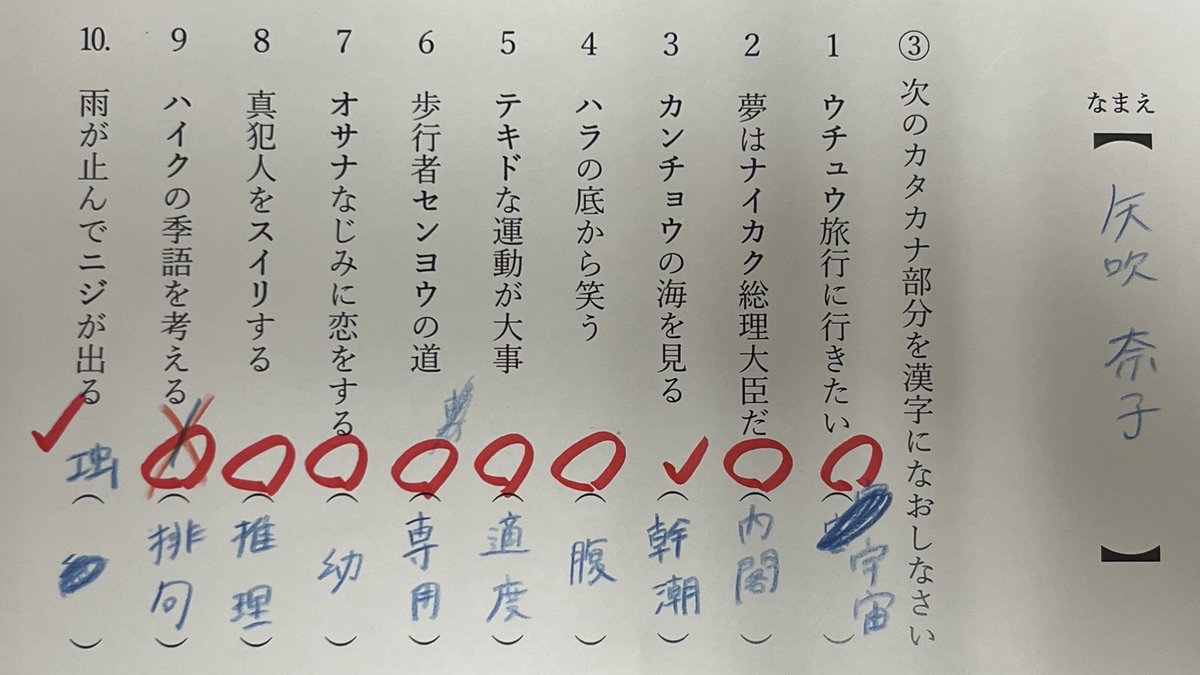 なまえ【 矢吹 奈子 】
③ 次のカタカナ部分を漢字になおしなさい
1 ウチュウ旅行に行きたい（ 宇宙 ）
2 夢はナイカク総理大臣だ（ 内閣 ）
3 カンチョウの海を見る（ 幹潮 ）
4 ハラの底から笑う（ 腹 ）
5 テキドな運動が大事（ 適度 ）
6 歩行者センヨウの道（ 専用 ）
7 オサナなじみに恋をする（ 幼 ）
8 真犯人をスイリする（ 推理 ）
9 ハイクの季語を考える（ 排句 ）
10. 雨が止んでニジが出る（ ）